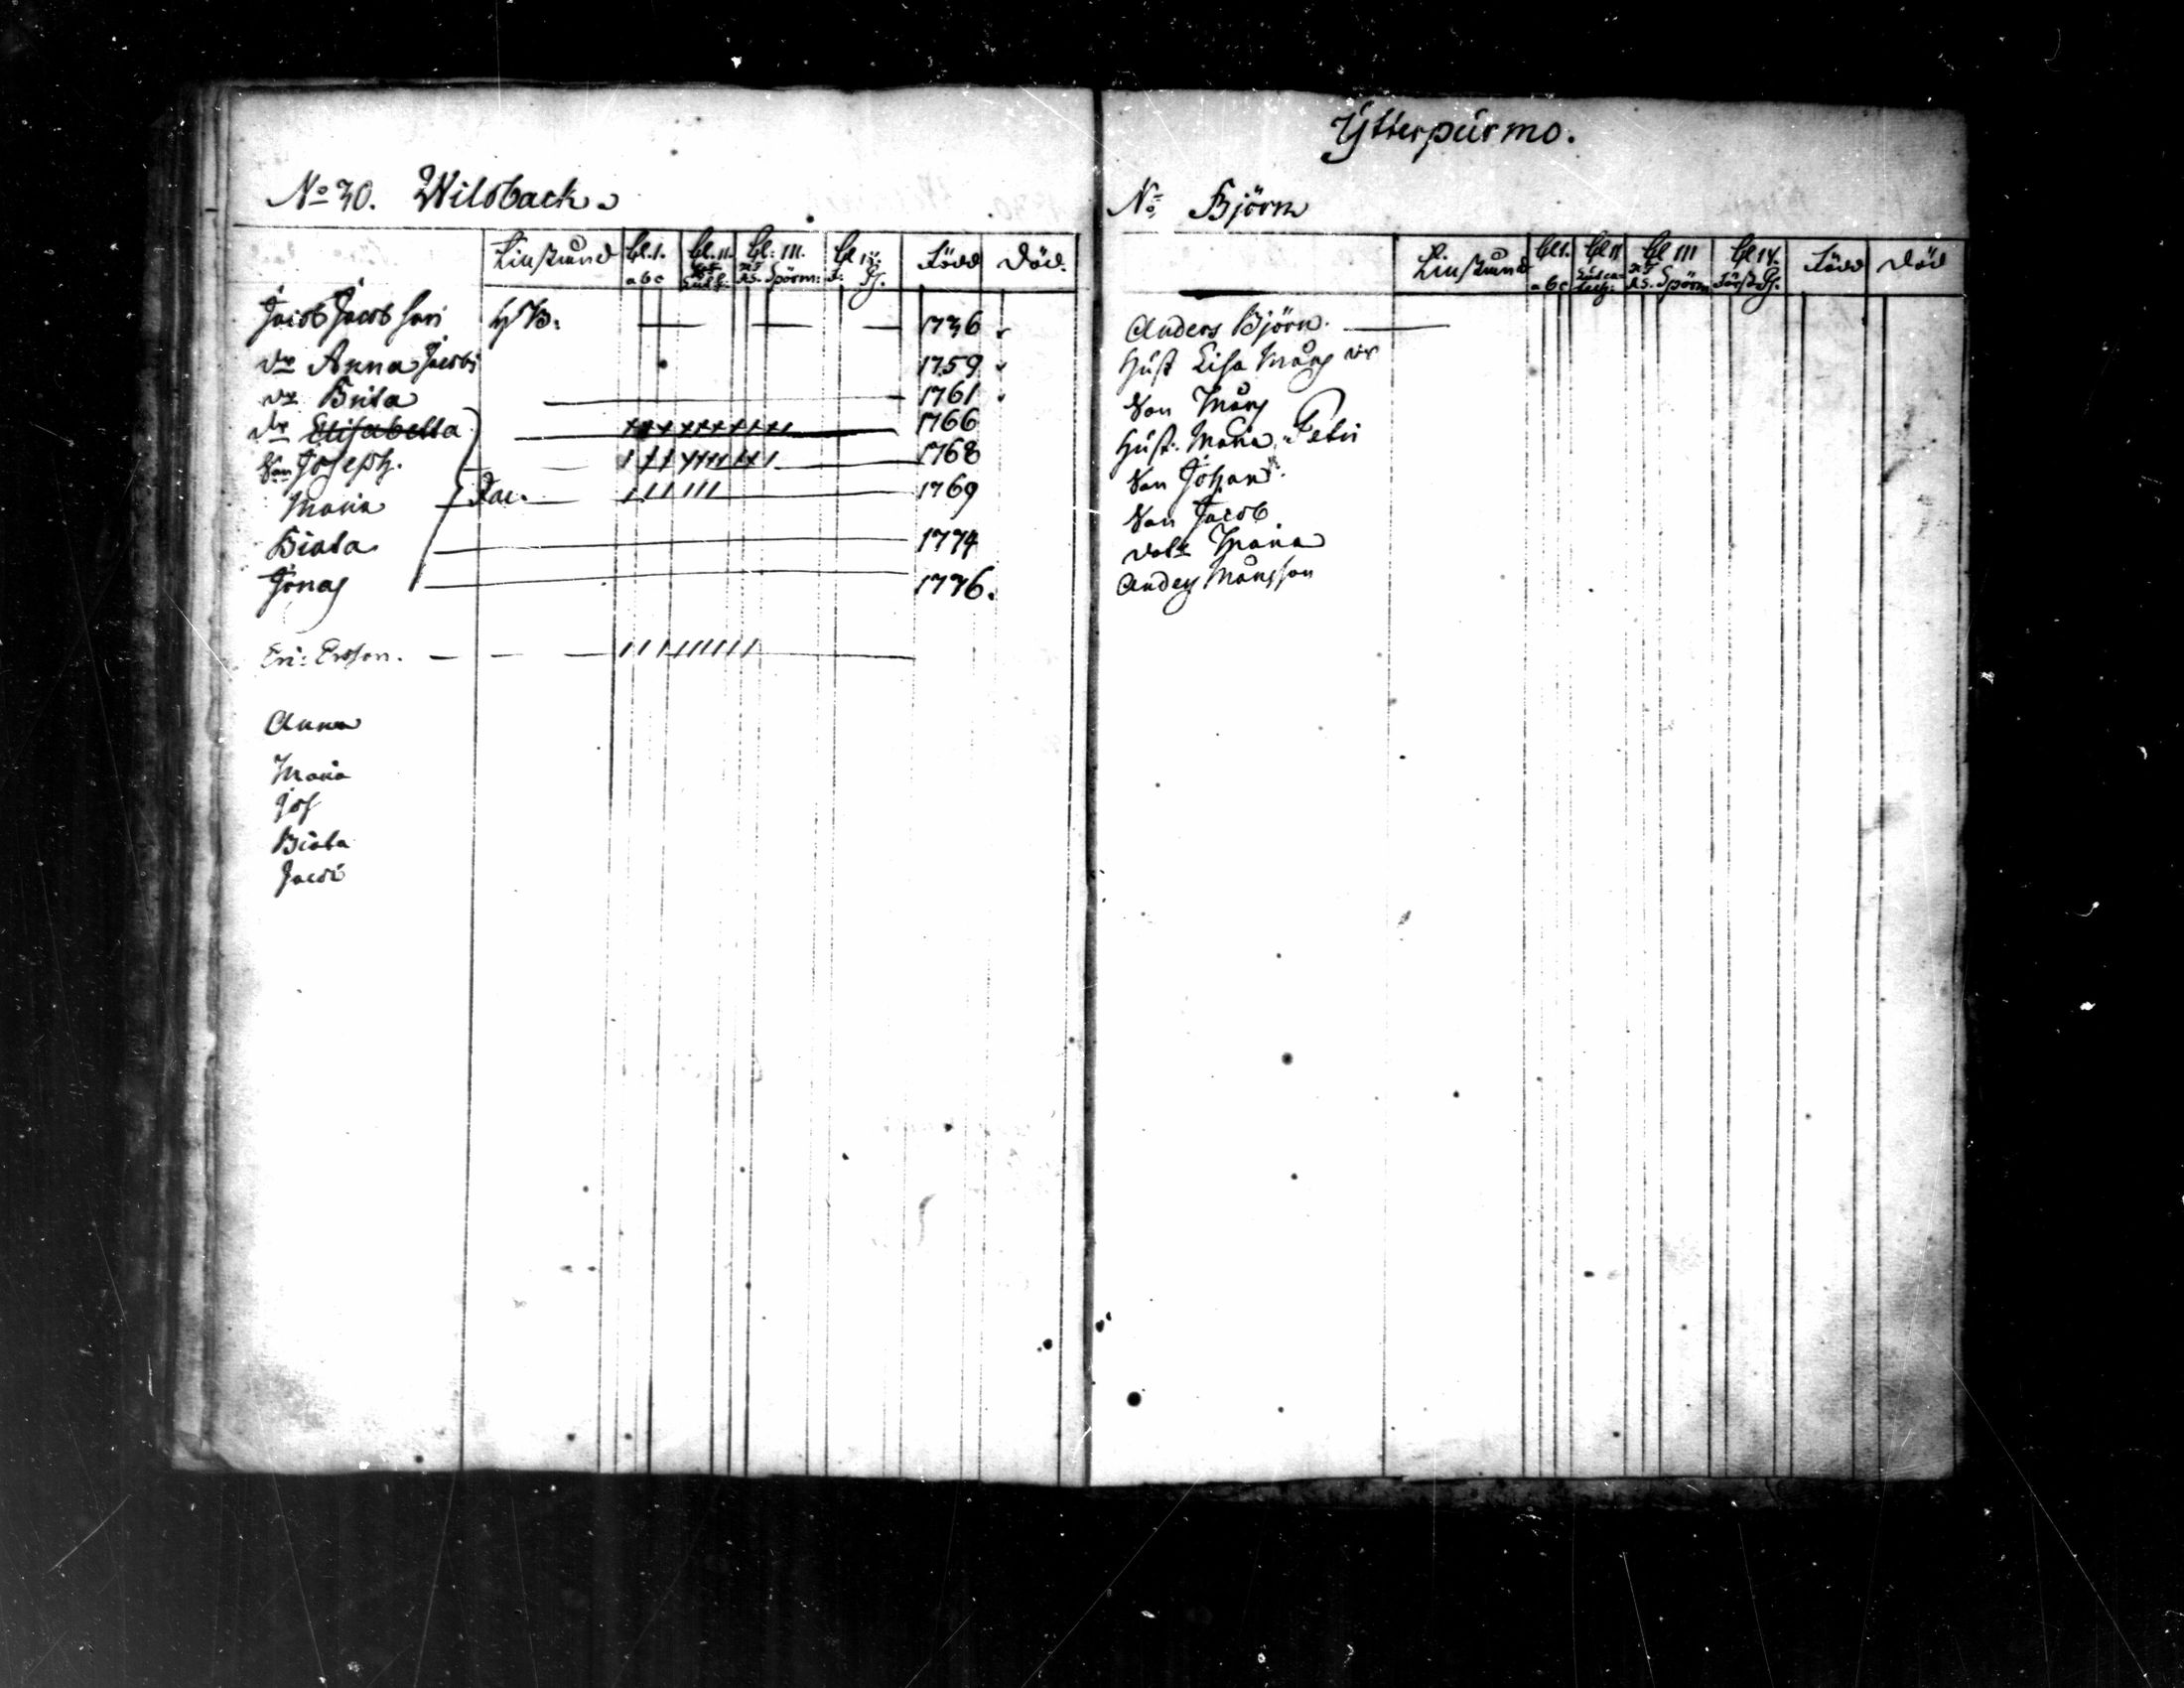 No 30. Wilsback.
Linstund Cl. I. Cl. II. Cl. III. Cl. IV. Född Död.
a b c Spörm:
Jacob Jacobsson 1736
dr Anna Jacobs 1759
dr Brita 1761
dr Elisabetta 1766
Son Joseph. 1768
Maria 1769
Beata 1774
Jonas 1776.
Eric Ersson.
Anna
Maria
Jos
Beata
Jacob
Ytterpurmo.
No Björn
Linstund Cl I. Cl II Cl III Cl IV. Född Död
a b c Spörm
Anders Björn.
Hust Lisa Måns dr
Son Måns
Hust. Maria Petri
Son Johan
Son Jacob
dotr Maria
Anders Månsson